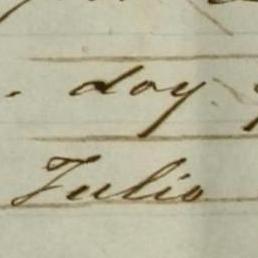 . doy
Julio